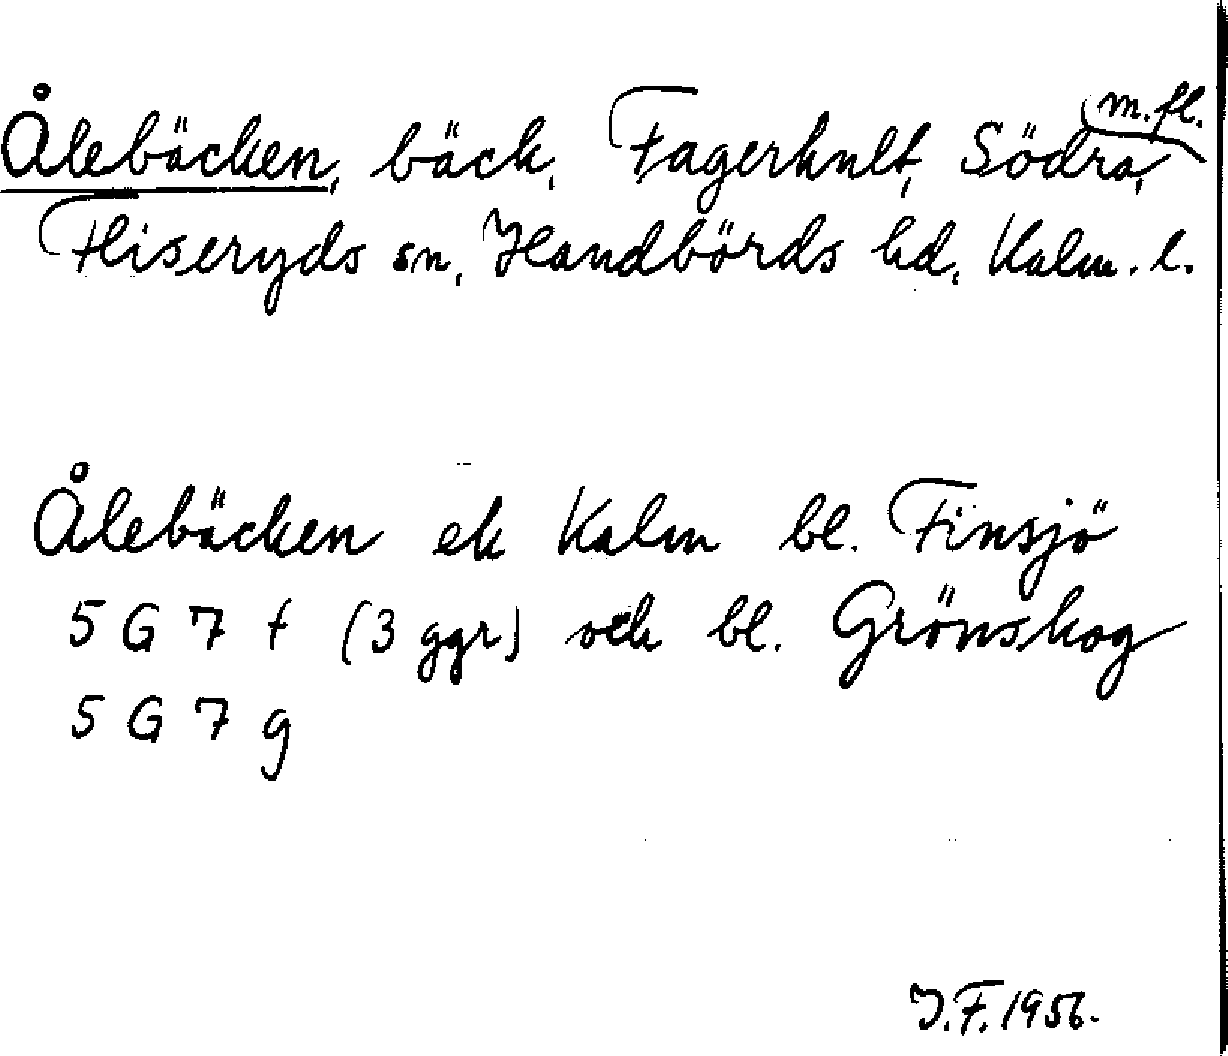 Ålebäcken, bäck, Fagerhult, Södra, m. fl.
Fliseryds sn, Handbörds hd, Kalm. l.
Ålebäcken ek Kalm bl. Finsjö
5 G 7 f (3 ggr) och bl. Grönskog
5 G 7 g
J.F. 1956.